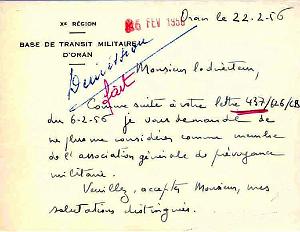 Xe RÉGION
BASE DE TRANSIT MILITAIRE
D'ORAN
26 FEV 1956
Oran le 22.2.56
Démission
Fait
Monsieur le directeur,
Comme suite à votre lettre 437/626/CB
du 6-2-56 je vous demande de
ne plus me considérer comme membre
de l'association générale de prévoyance
militaire.
Veuillez, accepter Monsieur, mes
salutations distinguées.